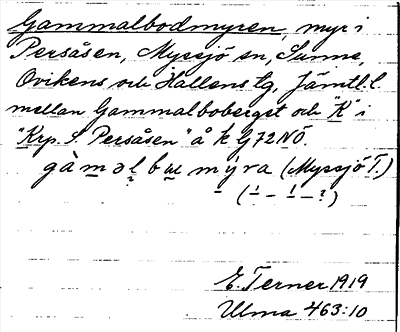 Gammalbodmyren, myr i
Persåsen, Myssjö sn, Sunne,
Ovikens och Hallens tg, Jämtl. l.
mellan Gammalboberget och "K" i
"Krp. S. Persåsen" å k G 72 NÖ.
gàmǝl bɯ mýra (Myssjö T.)
(ˊ – ˋ – ?)
E. Terner 1919
Ulma 463:10